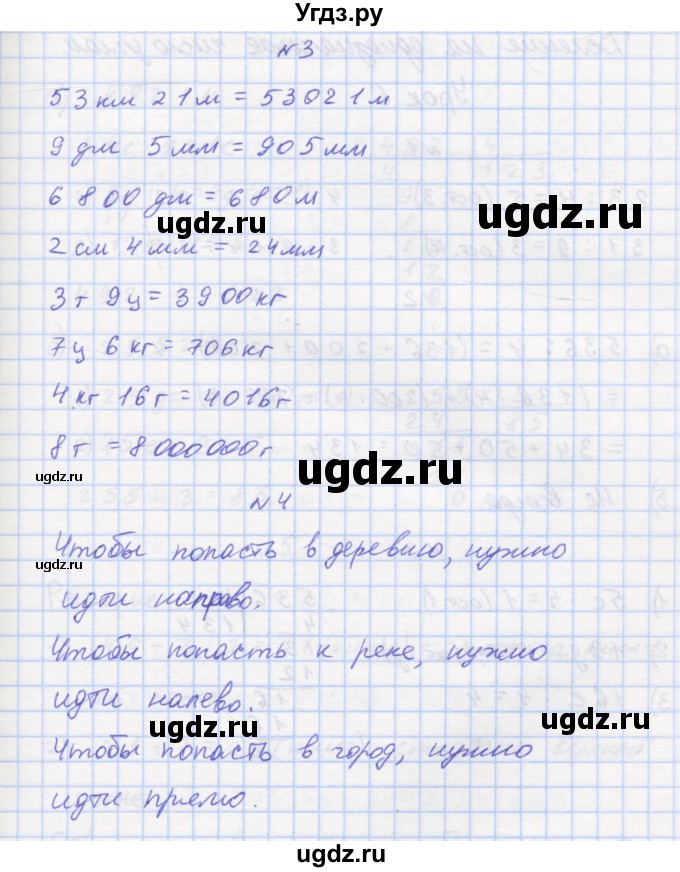 Угдз.ру
N3
53 км 21 м = 53021 м
9 дм 5 мм = 905 мм
6 800 дм = 680 м
ugdz.ru
ugdz.ru
2 см 4 мм = 24 мм
3 т 9 ц = 3900 кг
7 ц 6 кг = 706 кг
4 кг 16 г = 4016 г
8 т = 8 000000 г
ugdz.ru
ugdz.ru
N 4
Чтобы попасть в деревню, нужно
ugdz.ru
идти направо.
Чтобы попасть к реке, нужно
идти налево.
ugdz.ru
ugdz.ru
Чтобы попасть в город, нужно
идти прямо.
ugdz.ru